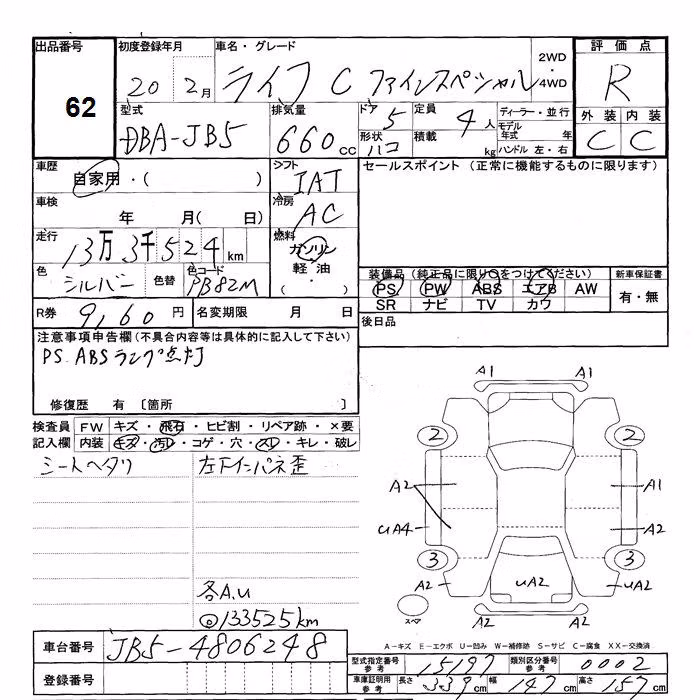 出品番号 62
初度登録年月 20 2月
車名・グレード ライフ C ファインスペシャル
2WD・4WD
評価点 R
型式 DBA-JB5
排気量 660cc
ドア 5
形状 ハコ
定員 4人
積載 kg
ディーラー・並行
モデル年式 年
ハンドル 左・右
外装 C
内装 C
車歴 自家用・( )
シフト IAT
セールスポイント (正常に機能するものに限ります)
車検 年 月( 日)
冷房 AC
走行 13万3千524km
燃料 ガソリン 軽油 ( ・ )
色 シルバー
色替
色コード PB82M
装備品(純正品に限り○をつけてください)
PS PW ABS エアB AW
SR ナビ TV カワ
新車保証書 有・無
R券 9,160円
名変期限 月 日
後日品
注意事項申告欄(不具合内容等は具体的に記入して下さい)
PS.ABSランプ点灯
修復歴 有〔箇所 〕
検査員 FW キズ・飛石・ヒビ割・リペア跡・×要
記入欄 内装 キズ・汚レ・コゲ・穴・スレ・キレ・破レ
シートヘタリ
左下インパネ歪
各A.U
◎133525km
A1 A1
2 2
A2 A1
UA4 A2
3 3
A2 UA2 UA2
スペア
A2 A2
A-キズ E-エクボ U-凹み W-補修跡 S-サビ C-腐食 XX-交換済
車台番号 JB5-4806248
登録番号
型式指定番号 参考 15197
類別区分番号 参考 0002
車庫証明用 参考 長さ 339cm 幅 147cm 高さ 157cm